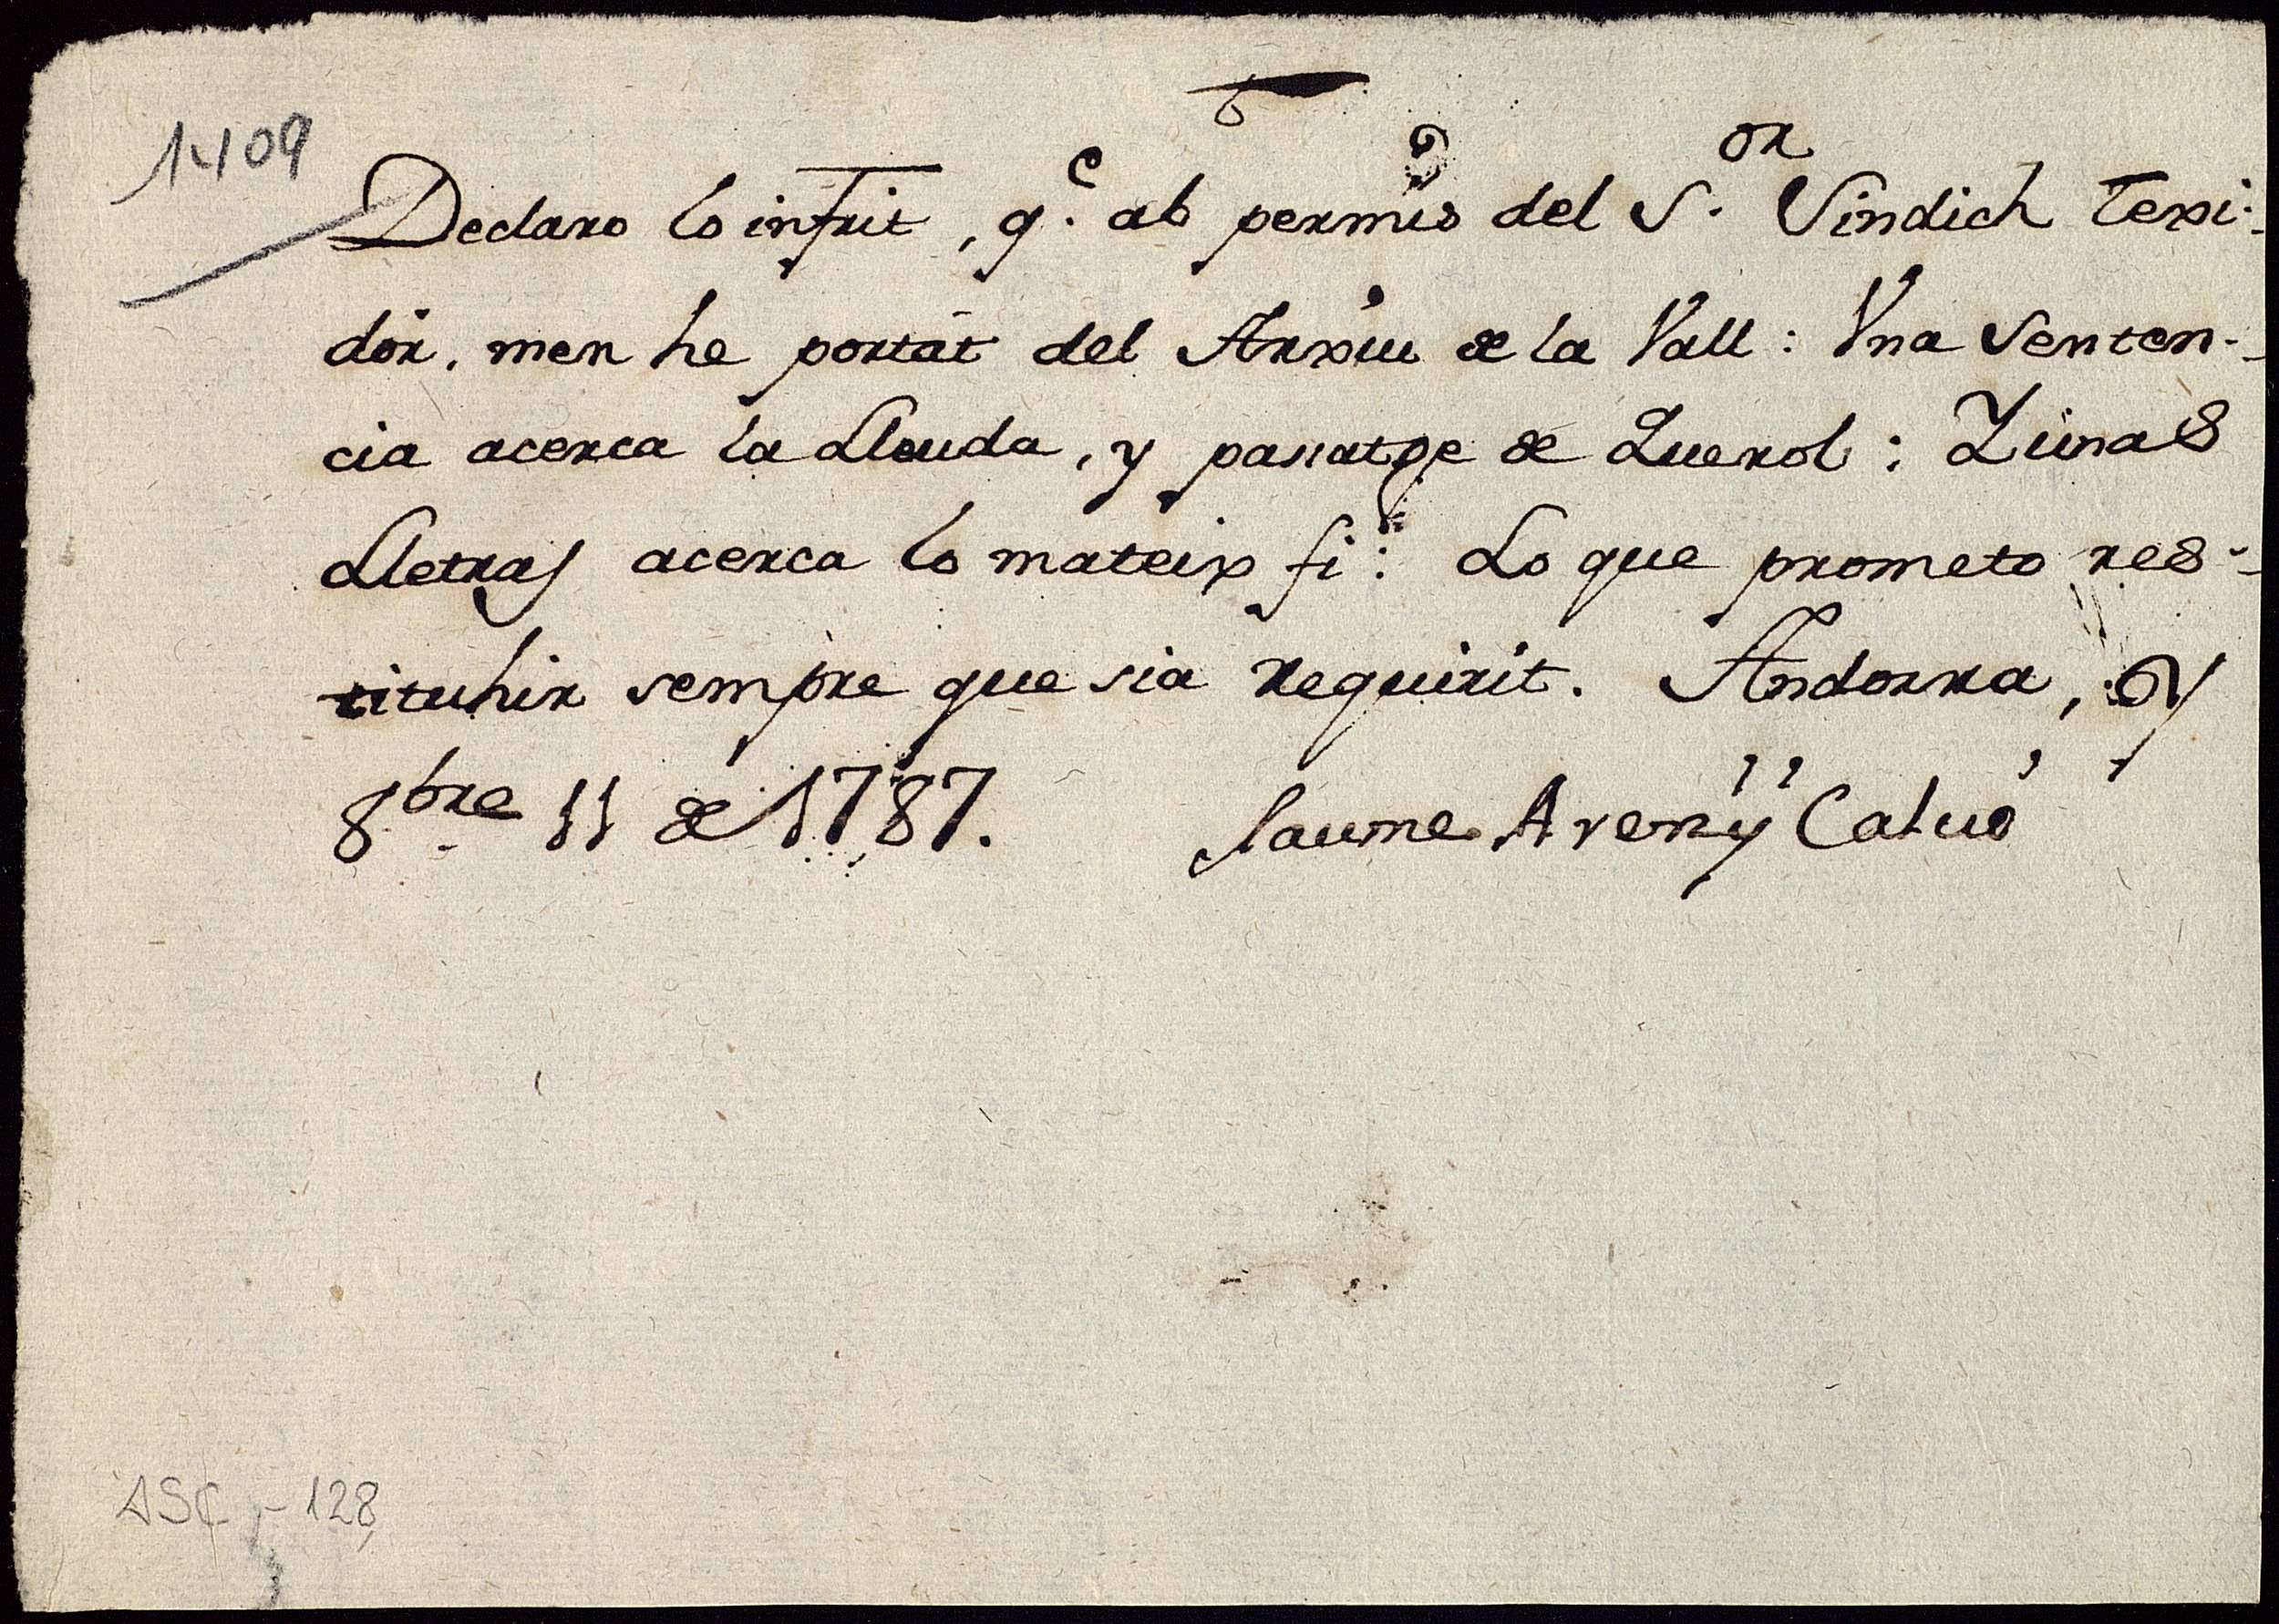 1409
Declaro lo infrit, q.e ab permis del S.or Sindich Texi-
dór, men he portát del Arxiu de la Vall: Vna Senten-
cia acerca la Lleuda, y passatge de Querol; Y unas
Lletras acerca lo mateix fi: Lo que prometo res-
tituhir sempre que sia requirit. Andorra, y
8bre 11 de 1787. Jaume Areny Calvó
ASC - 128